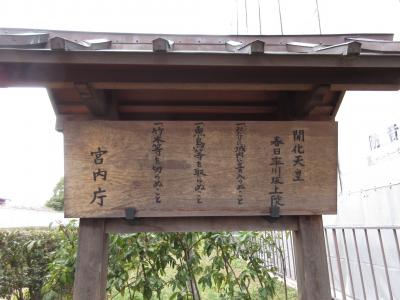 開化天皇
春日率川坂上陵
一みだりに域内に立入らぬこと
一魚鳥等を取らぬこと
一竹木等を切らぬこと
宮内庁